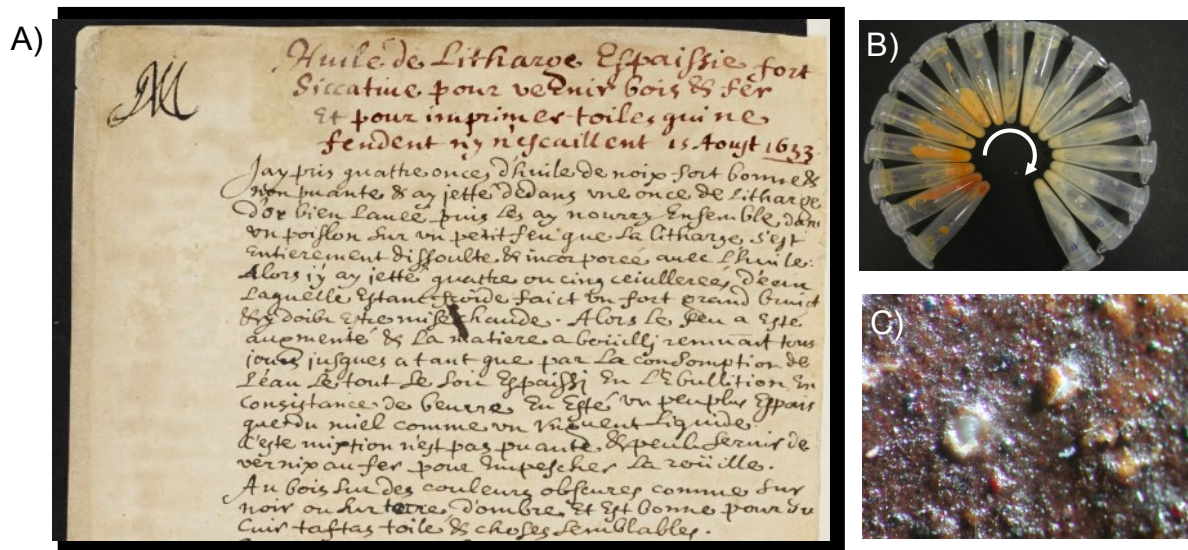 A)
B)
C)
M
Huile de Litharge Espaissie fort
Siccative pour vernir bois & fer
Et pour imprimer toiles qui ne
fendent ny n'escaillent 15 Aoust 1633
Jay pris quattre onces d'huile de noix fort bonne &
non puante & ay jetté dedans une once de Litharge
d'or bien lavée puis les ay nourry Ensemble dans
un poislon sur un petit feu que la litharge s'est
Entierement dissoulte & incorporee avec l'huile.
Alors j'y ay jetté quattre ou cinq ceuillerees d'eau
Laquelle Estant froide faict un fort grand bruict
& y doibt Etre mise chaude. Alors le feu a Esté
augmenté & La matiere a boüilli remuant tous
jours jusques a tant que par La consomption de
l'eau Le tout Se soit Espaissi En l'Ebullition En
Consistance de beurre En Esté un peu plus Espais
que du miel comme un Unguent Liquide
C'este mixtion n'est pas puante & peult servir de
vernix au fer pour Empescher La roüille.
Au bois sur des couleurs obscures comme sur
noir ou sur terre d'ombre Et Est bonne pour du
Cuir taftas toile & choses semblables.